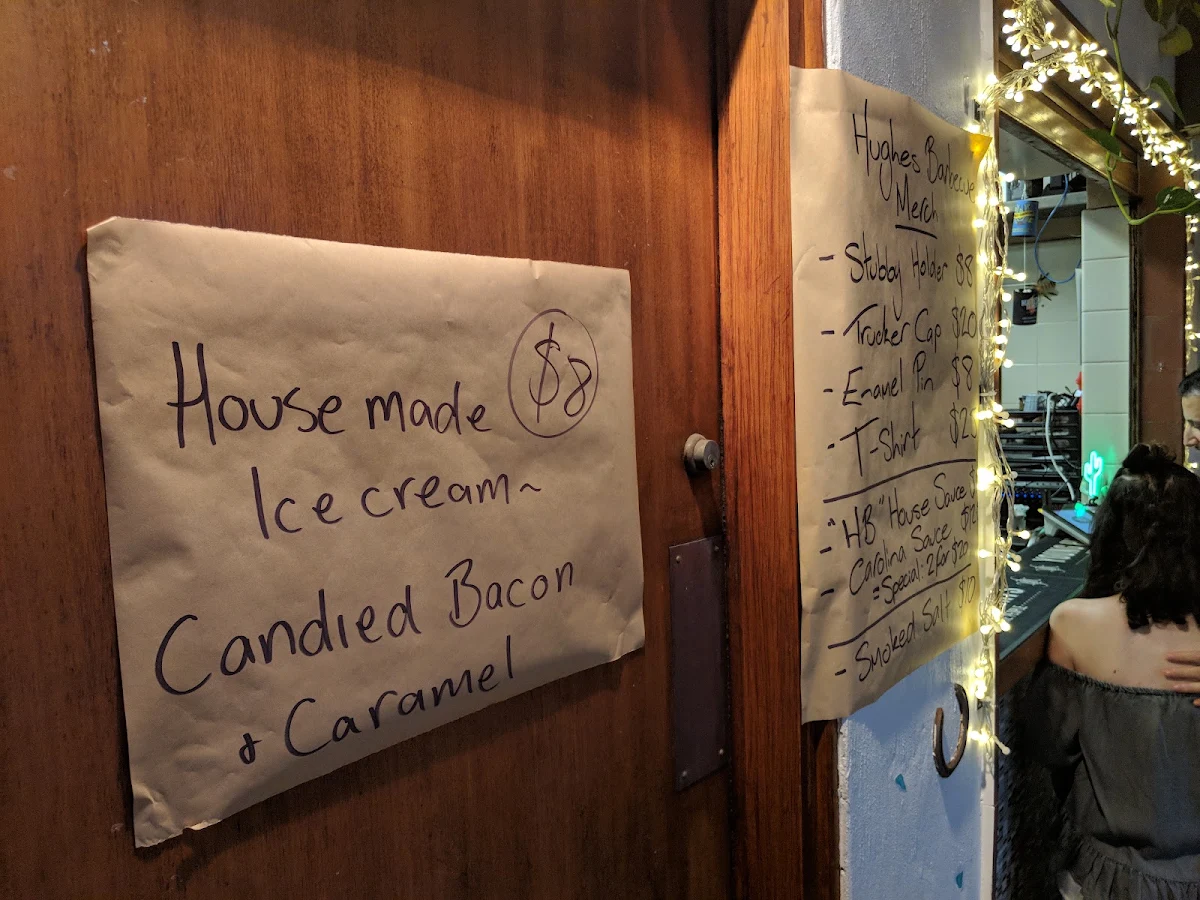 House made $8
Ice cream~
Candied Bacon
+ Caramel
Hughes Barbecue
Merch
- Stubby Holder $8
- Trucker Cap $20
- Enamel Pin $8
- T-Shirt
- "HB" House Sauce
- Carolina Sauce $12
=Special: 2 for $20
- Smoked Salt $10